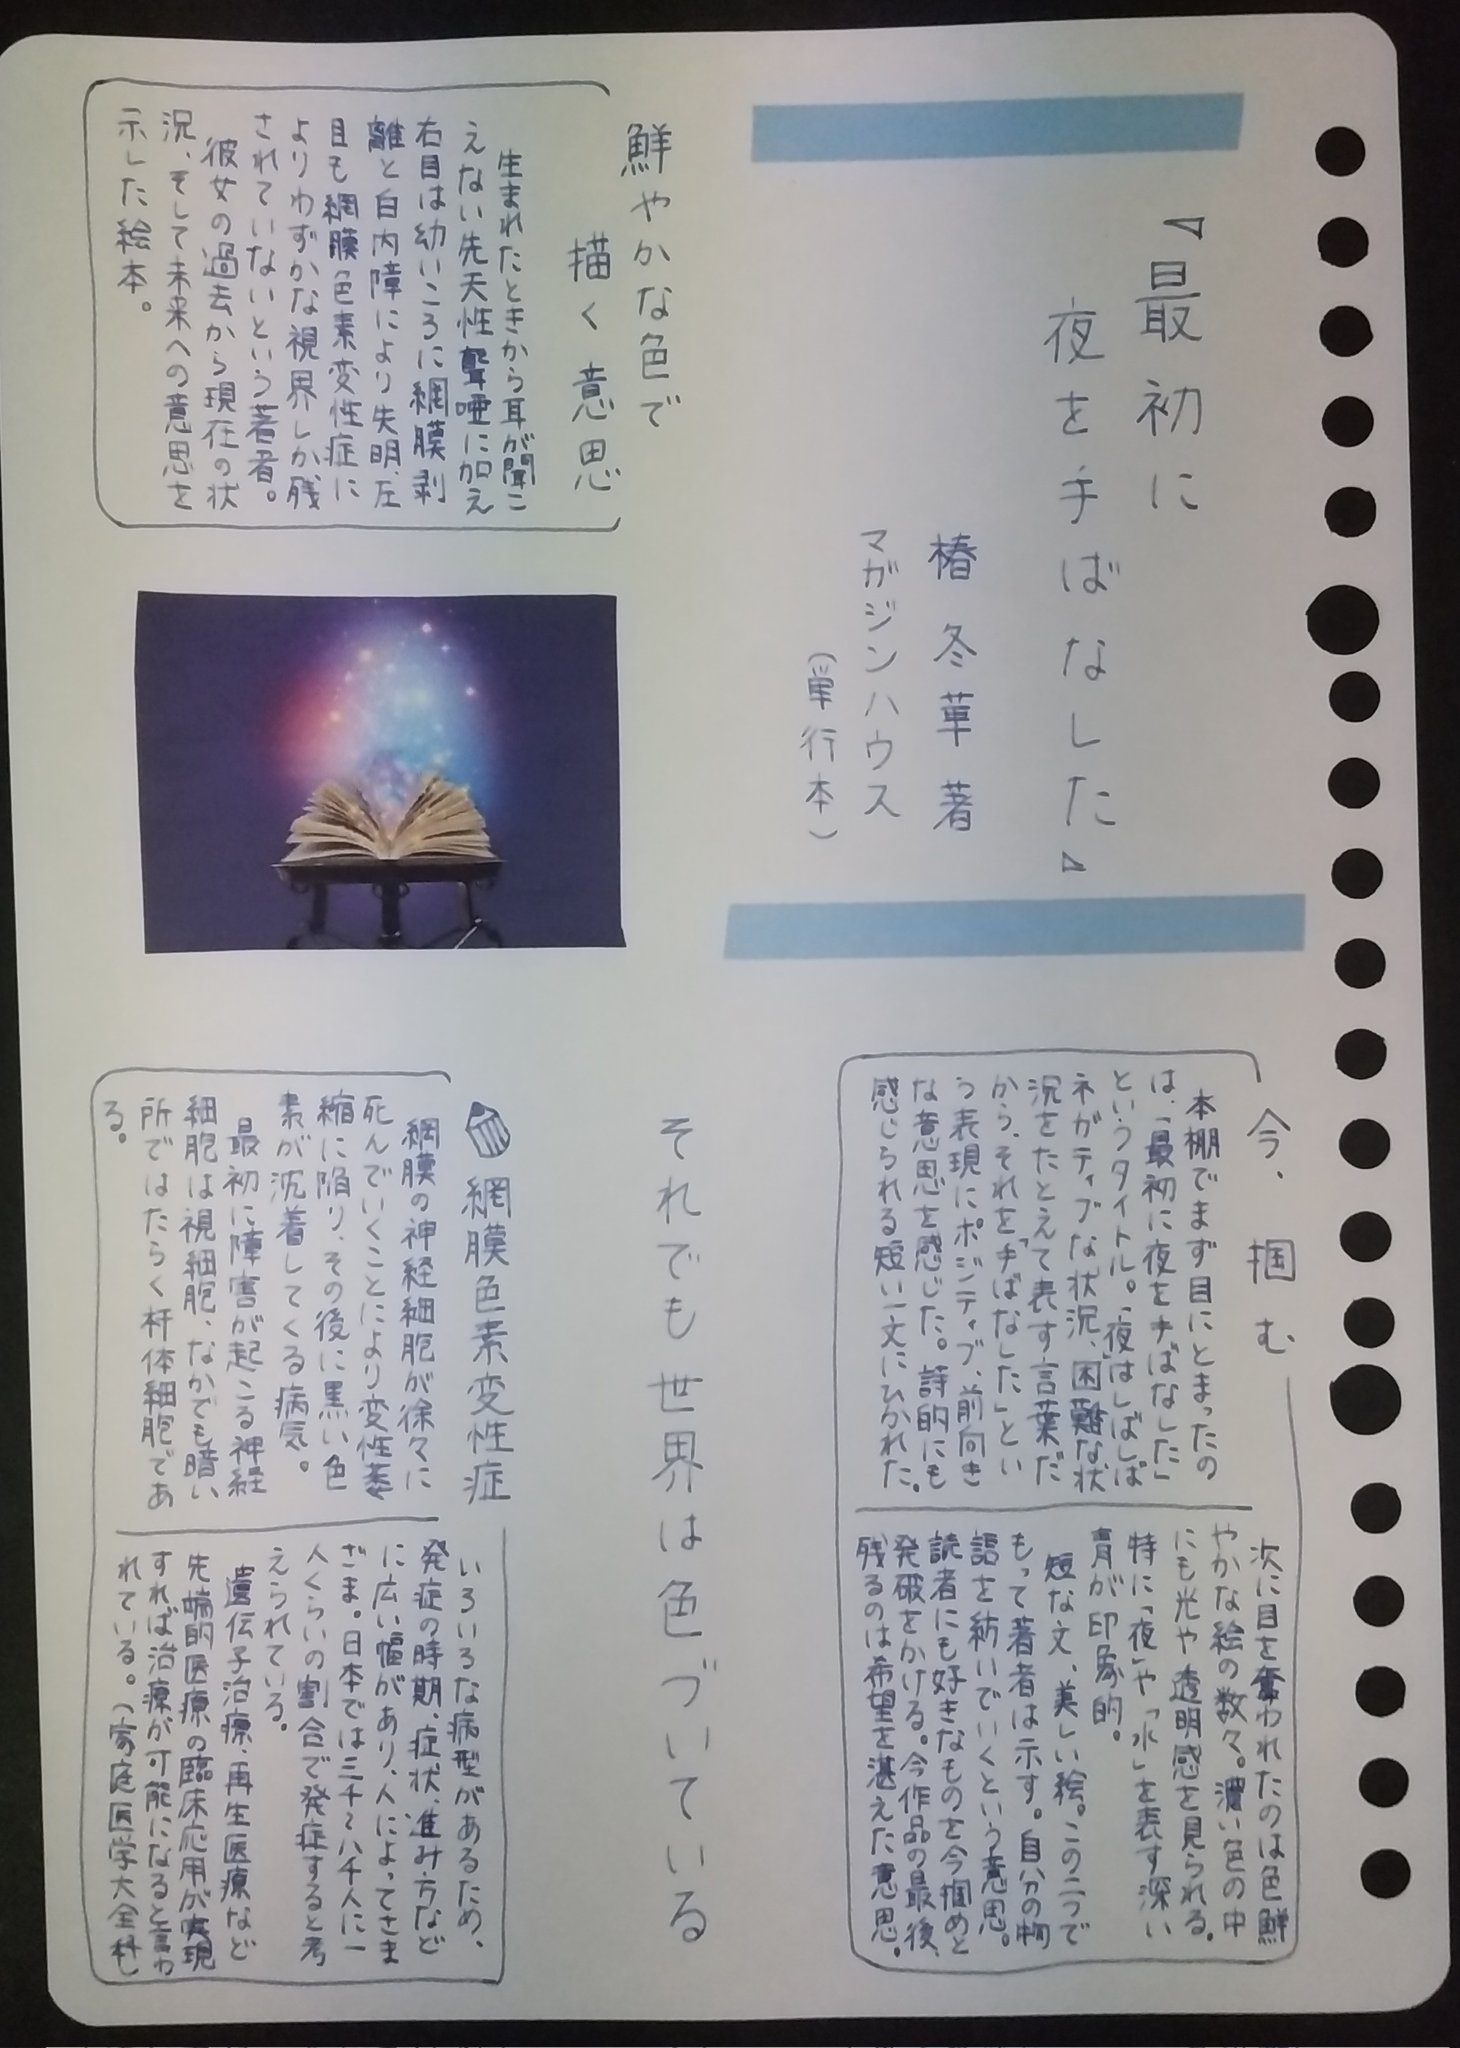 『最初に
夜を手ばなした』
椿 冬華 著
マガジンハウス
（単行本）
鮮やかな色で
描く 意思
生まれたときから耳が聞こ
えない先天性聾唖に加え
右目は幼いころに網膜剥
離と白内障により失明、左
目も網膜色素変性症に
よりわずかな視界しか残
されていないという著者。
彼女の過去から現在の状
況、そして未来への意思を
示した絵本。
今、掴む
本棚でまず目にとまったの
は、「最初に夜を手ばなした」
というタイトル。「夜」はしばしば
ネガティブな状況、困難な状
況をたとえて表す言葉だ
から、それを「手ばなした」とい
う表現にポジティブ、前向き
な意思を感じた。詩的にも
感じられる短い一文にひかれた。
次に目を奪われたのは色鮮
やかな絵の数々。濃い色の中
にも光や透明感を見られる。
特に「夜」や「水」を表す深い
青が印象的。
短な文、美しい絵。この二つで
もって著者は示す。自分の物
語を紡いでいくという意思。
読者にも好きなものを今掴めと
発破をかける。今作品の最後、
残るのは希望を湛えた意思。
それでも世界は色づいている
網膜色素変性症
網膜の神経細胞が徐々に
死んでいくことにより変性萎
縮に陥り、その後に黒い色
素が沈着してくる病気。
最初に障害が起こる神経
細胞は視細胞、なかでも暗い
所ではたらく杆体細胞であ
る。
いろいろな病型があるため、
発症の時期、症状、進み方など
に広い幅があり、人によってさま
ざま。日本では三千～八千人に一
人くらいの割合で発症すると考
えられている。
遺伝子治療、再生医療など
先端的医療の臨床応用が実現
すれば治療が可能になると言わ
れている。（家庭医学大全科）